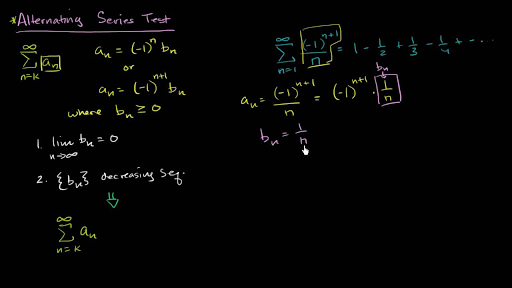 *Alternating Series Test
∞
∑ aₙ
n=k
aₙ = (-1)ⁿ bₙ
or
aₙ = (-1)ⁿ⁺¹ bₙ
where bₙ ≥ 0
1. lim bₙ = 0
n→∞
2. {bₙ} decreasing seq.
⇓
∞
∑ aₙ
n=k
∞
∑ (-1)ⁿ⁺¹/n = 1 - 1/2 + 1/3 - 1/4 + - ....
n=1
bₙ
aₙ = (-1)ⁿ⁺¹/n = (-1)ⁿ⁺¹ · 1/n
bₙ = 1/n